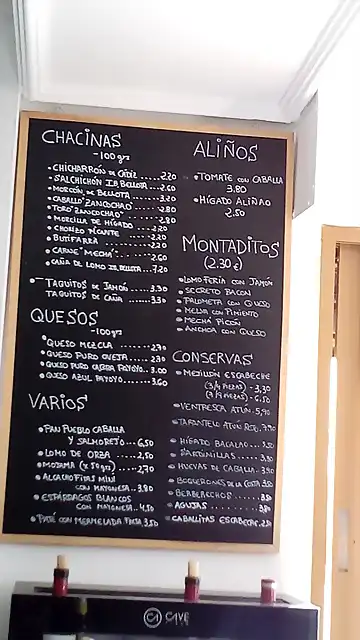 CHACINAS
-100 grs
• CHICHARRÓN DE CÁDIZ ..... 2,20
• SALCHICHÓN IB. BELLOTA ... 2,60
• MORCÓN DE BELLOTA ..... 3,20
• CABALLO "ZANCOCHAO" .... 2,80
• TORO "ZANCOCHAO" ..... 2,80
• MORCILLA DE HÍGADO .... 2,20
• CHORIZO PICANTE ..... 2,20
• BUTIFARRA ..... 2,20
• CARNE "MECHÁ" ..... 2,60
• CAÑA DE LOMO IB. BELLOTA ... 7,20
• TAQUITOS DE JAMÓN .... 3,30
TAQUITOS DE CAÑA .... 3,30
QUESOS
-100 grs
• QUESO MEZCLA ..... 2,70
• QUESO PURO OVEJA .... 2,70
• QUESO PURO CABRA PAYOYO .. 3.00
• QUESO AZUL PAYOYO ..... 3.60
VARIOS
• PAN PUEBLO CABALLA
Y SALMOREJO ... 6,50
• LOMO DE ORZA ..... 2,50
• MOJAMA (x 50 grs) .... 2,70
• ALCACHOFITAS MINI
CON MAYONESA .. 3.80
• ESPÁRRAGOS BLANCOS
CON MAYONESA .. 4,50
• PATÉ CON MERMELADA 3,50
ALIÑOS
• TOMATE CON CABALLA
3.80
• HÍGADO ALIÑAO
2.50
MONTADITOS
(2.30 €)
• LOMO FERIA CON JAMÓN
• SECRETO BACON
• PALOMETA CON QUESO
• MELVA CON PIMIENTO
• MECHÁ PICÓN
• ANCHOA CON QUESO
CONSERVAS
• MEJILLÓN ESCABECHE
(3/4 PIEZAS) - 3,30
(7/9 PIEZAS) - 6.50
• VENTRESCA ATÚN - 5,90
• TARANTELO ATÚN
• HÍGADO BACALAO
• SARDINILLAS .... 3,30
• HUEVAS DE CABALLA .. 3.90
• BOQUERONES DE LA COSTA 3.50
• BERBERECHOS
• AGUJAS ..... 3.80
• CABALLITAS ESCABECHE
CAVE